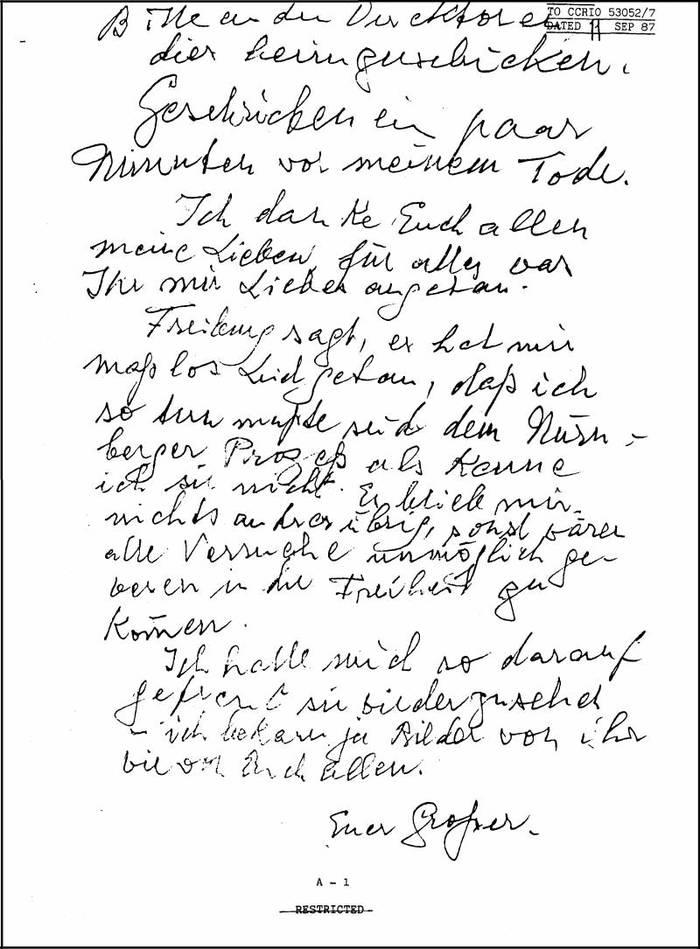 TO CCRIO 53052/7
DATED 11 SEP 87
Bitte an die Direktoren
dies heimzuschicken.
Geschrieben ein paar
Minuten vor meinem Tode.
Ich danke Euch allen
meine Lieben für alles was
Ihr mir Liebes angetan.
Freiburg sagt, es hat mir
maßlos Leid getan, daß ich
so tun mußte seid dem Nürn-
berger Prozeß als kenne
ich sie nicht. Es blieb mir
nichts andres übrig, sonst wären
alle Versuche unmöglich ge-
wesen in die Freiheit zu
kom̄en.
Ich hatte mich so darauf
gefreut sie wiederzusehen
ich bekam ja Bilder von ihr
wie von Euch allen.
Euer Großer.
A - 1
RESTRICTED